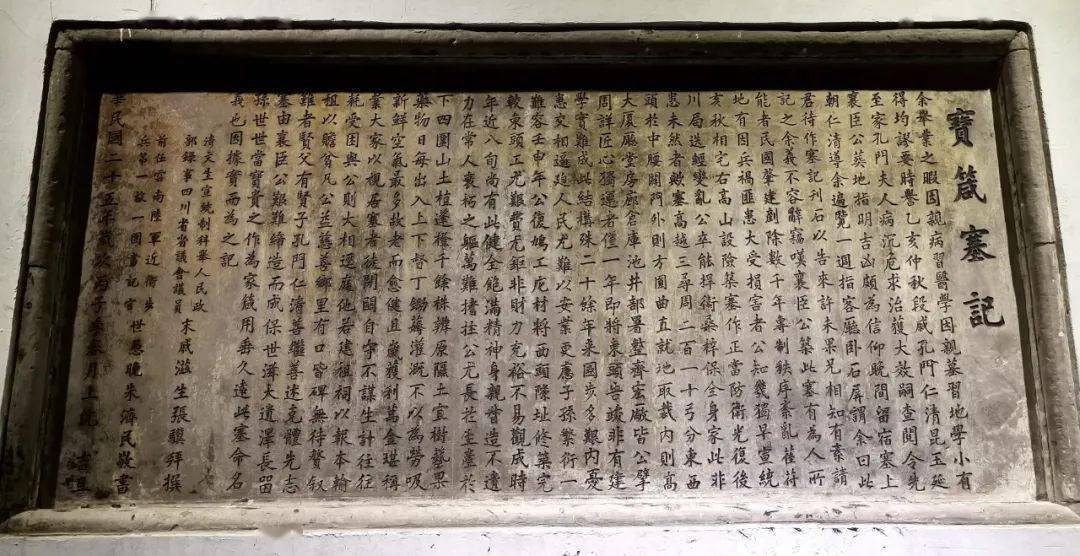 寶箴塞記
余舉業之暇因親病習醫學因親墓習地學小有
得均謬要時譽乙亥仲秋段戚孔門仁清昆玉延
至家孔門夫人病沉危求治獲大效嗣查閱令先
襄臣公葬地指明吉凶頗為信仰晚間留宿塞上
朝仁清導余遍覽一週指客廳卧石屏謂余曰此
君待作塞記刊石以告來許未果兄相知有素請
記之余義不容辭竊嘆襄臣公築此塞有為人所
能者民國肇建剷除數千年專制秩序紊亂萑苻
地有因兵禍匪患大受損害者公知幾獨早當統
亥秋相宅右高山設險築塞作正當防衛光復後
川局迭經變亂公卒能捍衛桑梓保全身家此非
患未然者歟塞高越三尋周二百一十弓分東西
頭於中腰開門外則方圓曲直就地取裁內則高
大廈廳堂房廊倉庫池井部署整齊宏厰皆公擘
周詳匠心獨運者僅一年即將東頭告竣非有建
學實難成此結構殊二十餘年來國步多艱內憂
患交相逼迫人民尤難以安業更慮子孫繁衍一
難容壬申年公復鳩工庀材將西頭陳址修築完
較東頭工尤艱費尤鉅非財力充裕不易觀成時
年近八旬尚有此健全飽滿精神身親營造不遺
力在常人衰朽之軀萬難撐拄公尤長茳至臺於
下四圍山土植達種千餘株辨原隰土宜樹藝果
藥物日每出入上下督丁鋤薅灌溉不以為勞吸
新鮮空氣最多故老而愈健且歲獲利萬金堪稱
業大家以視居塞者徒閉關自守不謀生計往往
耗受困與公則大相逕庭他若建祖祠以報本輸
租以贍貧凡公益慈善鄉里有口皆碑無待贅叙
雖者賢父有賢子孔門仁清善繼善述克體先志
塞由襄臣公艱難締造而成保世滋大遺澤長留
孫世世當寶貴之作為家箴用垂久遠此塞命名
義也因據實而為之記
清文生宣統制科舉人民政
部錄事四川省督議會議員 末戚滋生張驥拜撰
前任雲南陸軍近衛步
兵第一散一團書記官 世愚晚朱濟民敬書
華民國二十五年歲次丙子季春月上浣